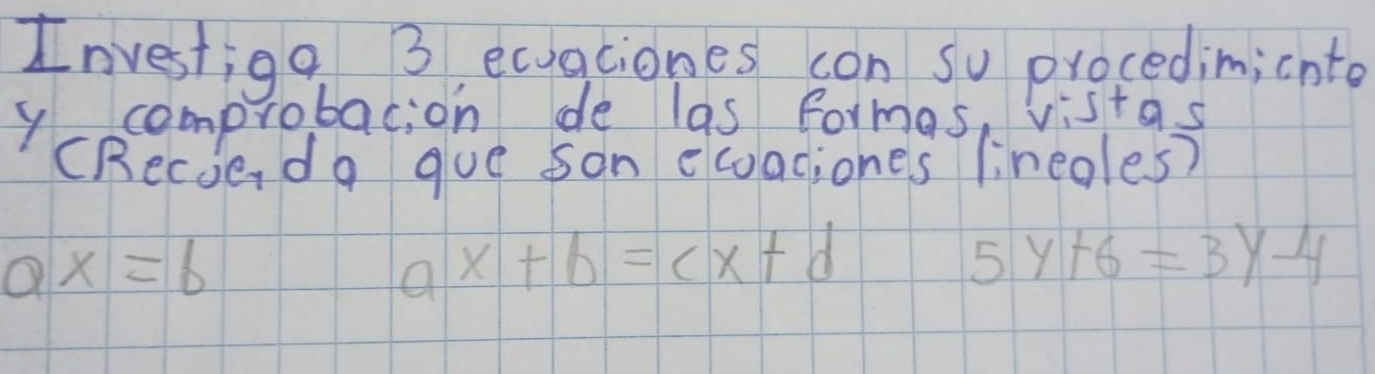 Investiga 3 ecuaciones con su procedimiento
y comprobación de las formas vistas
(Recuerda que son ecuaciones lineales)
ax = b ax + b = cx + d 5y+6 = 3y-4